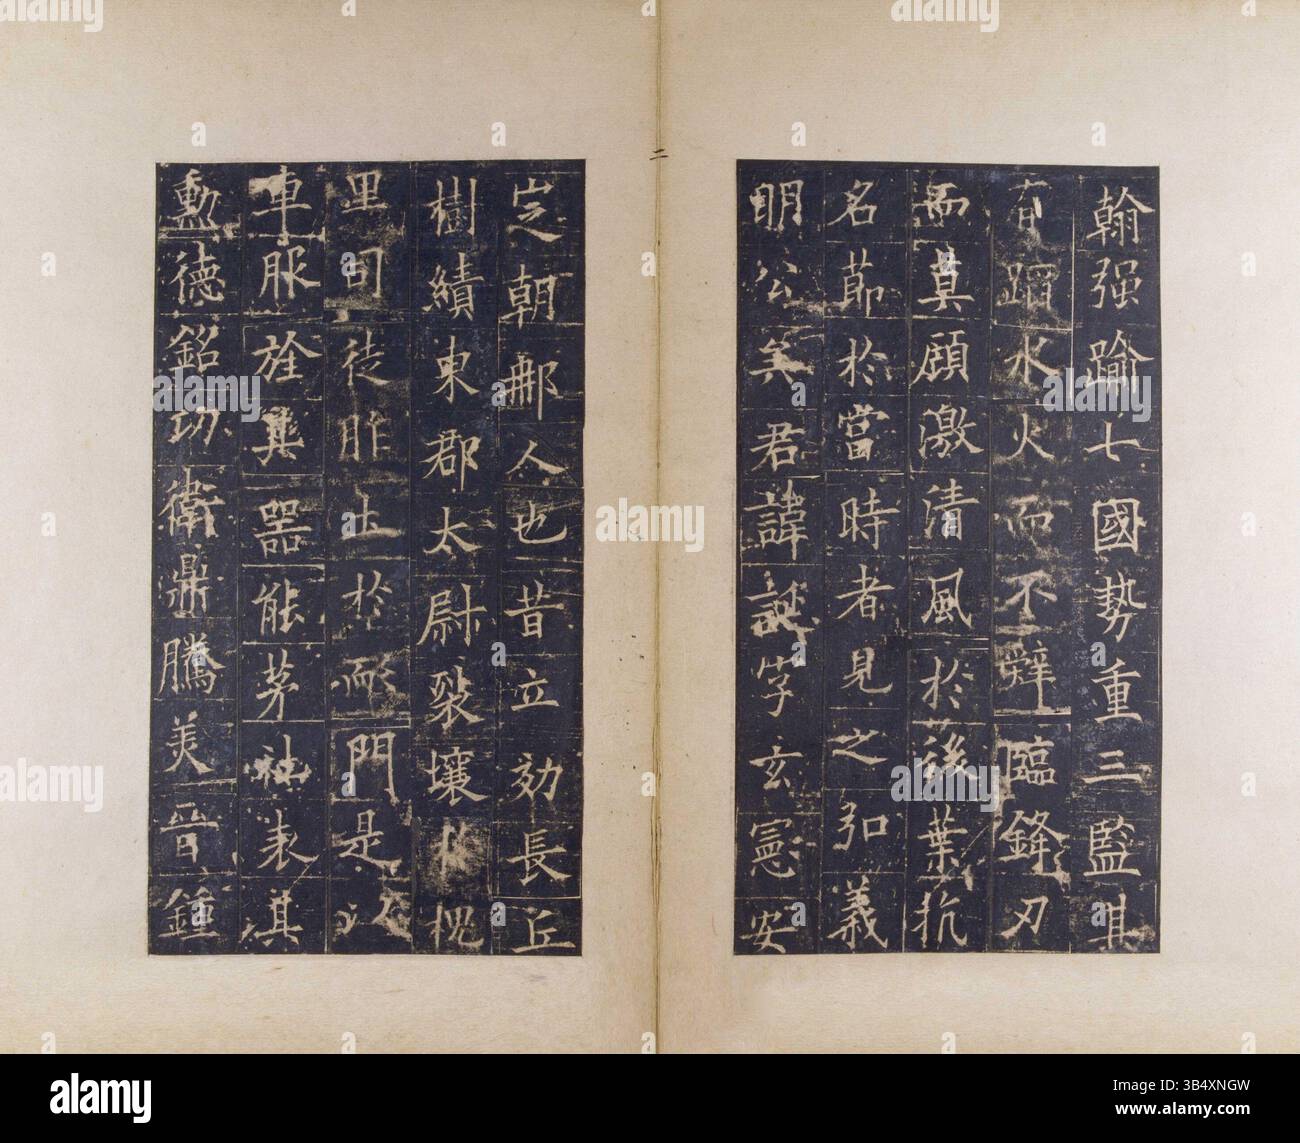 翰强踰七國勢重三監其
有蹈水火而不辭臨鋒刃
而莫顧激清風於後葉抗
名節於當時者見之弘義
明公矣君諱誕字玄憲安
定朝那人也昔立効長丘
樹績東郡太尉裂壤於槐
里司徒胙土於耏門是以
車服旌其器能茅社表其
勳德銘功衛鼎騰美晉鍾
alamy
Image ID: 3B4XNGW
www.alamy.com